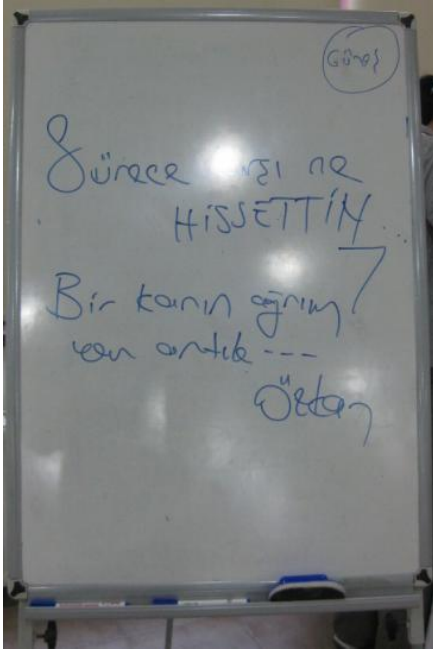 Güneş
Sürece karşı ne
HİSSETTİN ...
?
Bir karın ağrım
var artık ---
Özkan